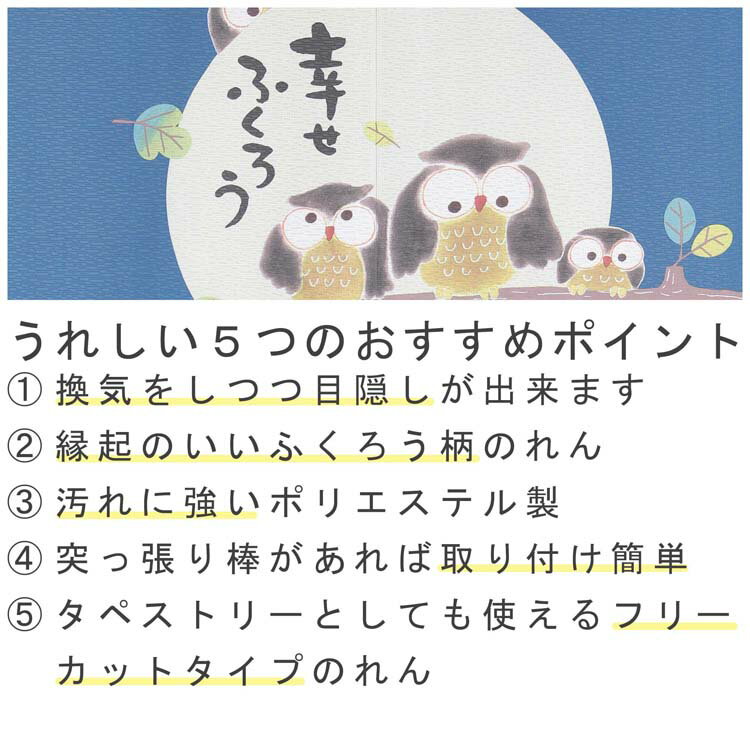 幸せ
ふくろう
うれしい５つのおすすめポイント
①換気をしつつ目隠しが出来ます
②縁起のいいふくろう柄のれん
③汚れに強いポリエステル製
④突っ張り棒があれば取り付け簡単
⑤タペストリーとしても使えるフリー
カットタイプのれん